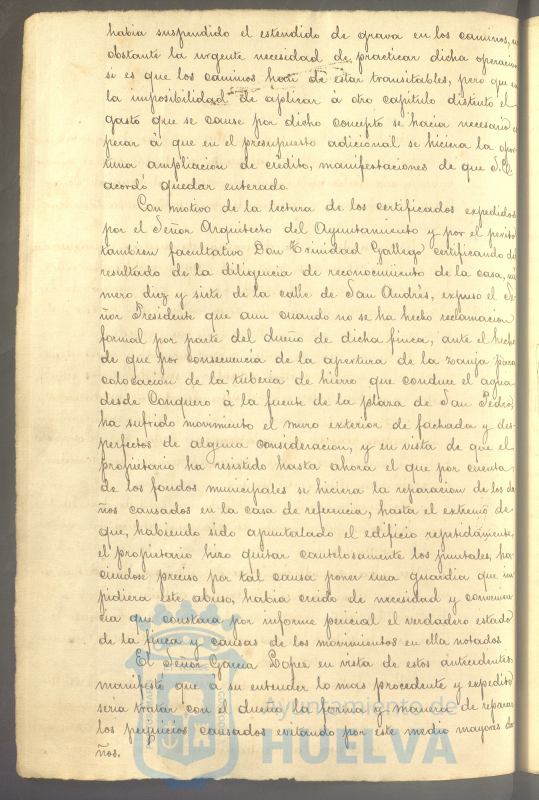 habia suspendido el estendido de grava en los caminos, no
obstante la urgente necesidad de practicar dicha operacion
si es que los caminos han de estar transitables, pero que en
la imposibilidad de aplicar á otro capitulo distinto el
gasto que se cause por dicho concepto se hacia necesario es
perar á que en el presupuesto adicional se hiciera la opor
tuna ampliacion de crédito, manifestaciones de que S.E.
acordó quedar enterado.
Con motivo de la lectura de los certificados expedidos
por el Señor Arquitecto del Ayuntamiento y por el perito
tambien facultativo Don Trinidad Gallego certificando el
resultado de la diligencia de reconocimiento de la casa, nú
mero diez y siete de la calle de San Andrés, expuso el Se
ñor Presidente que aun cuando no se ha hecho reclamacion
formal por parte del dueño de dicha finca, ante el hecho
de que por consecuencia de la apertura de la zanja para
colocacion de la tuberia de hierro que conduce el agua
desde Conquero á la fuente de la plaza de San Pedro,
ha sufrido movimiento el muro exterior de fachada y des
perfectos de alguna consideracion, y en vista de que el
propietario ha resistido hasta ahora el que por cuenta
de los fondos municipales se hiciera la reparacion de los da
ños causados en la casa de referencia, hasta el extremo de
que, habiendo sido apuntalado el edificio repetidamente,
el propietario hizo quitar cautelosamente los puntales, ha
ciendose preciso por tal causa poner una guardia que im
pidiera este abuso, habia creido de necesidad y convenien
cia que constara por informe pericial el verdadero estado
de la finca y causas de los movimientos en ella notados.
El Señor Garcia Lopez en vista de estos antecedentes
manifestó que á su entender lo mas procedente y expedito
seria tratar con el dueño la forma y manera de reparar
los perjuicios causados evitando por este medio mayores da
ños.
Ayuntamiento de
HUELVA